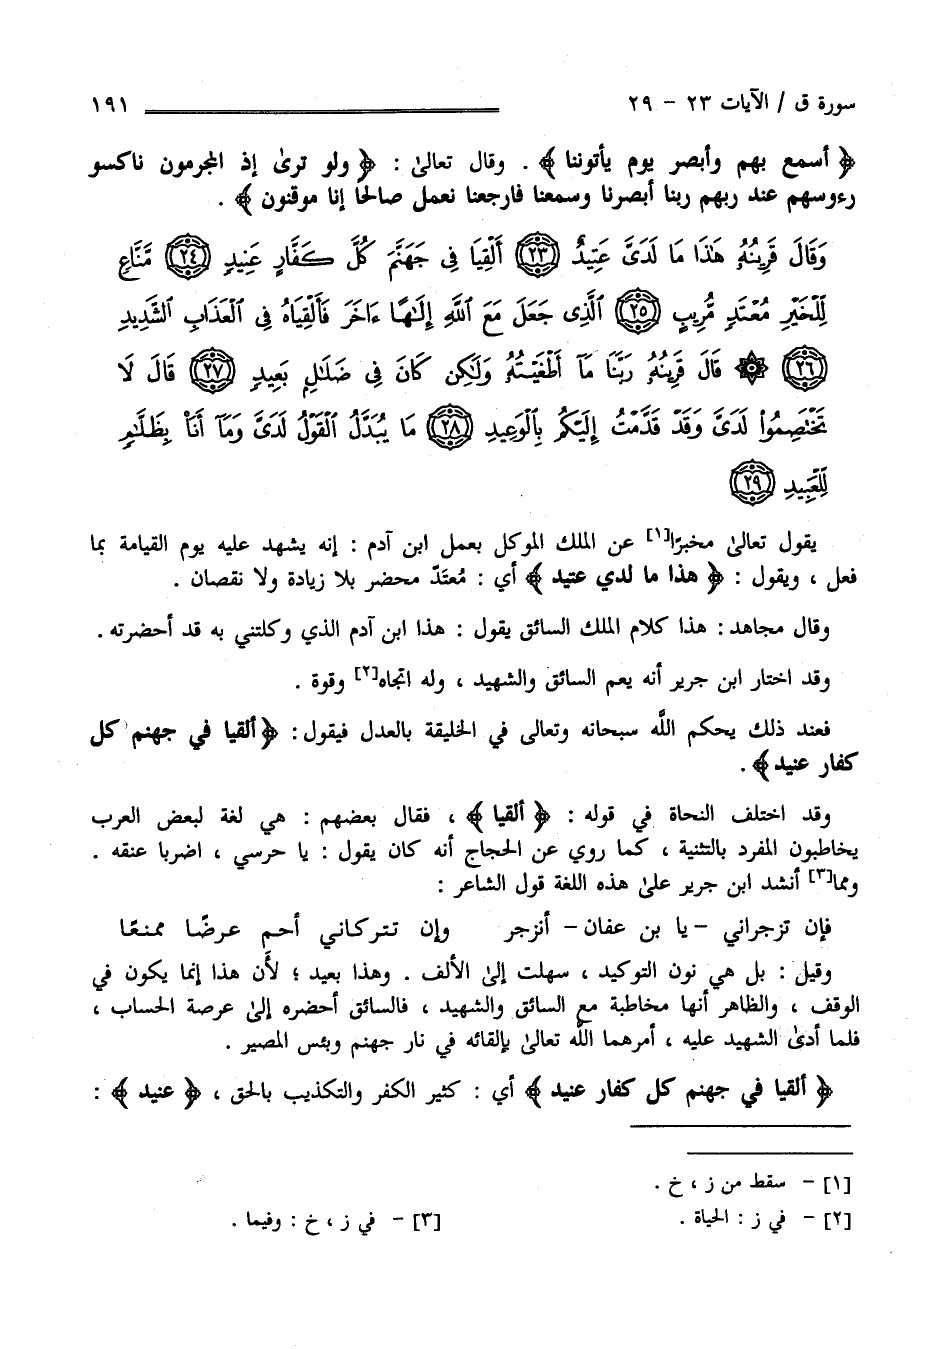 سورة ق / الآيات ٢٣ - ٢٩ ١٩١
﴿ أسمع بهم وأبصر يوم يأتوننا ﴾ . وقال تعالىٰ : ﴿ ولو ترىٰ إذ المجرمون ناكسو
رءوسهم عند ربهم ربنا أبصرنا وسمعنا فارجعنا نعمل صالحًا إنا موقنون ﴾ .
وَقَالَ قَرِينُهُۥ هَٰذَا مَا لَدَىَّ عَتِيدٌ ٢٣ أَلْقِيَا فِى جَهَنَّمَ كُلَّ كَفَّارٍ عَنِيدٍ ٢٤ مَّنَّاعٍ
لِّلْخَيْرِ مُعْتَدٍ مُّرِيبٍ ٢٥ ٱلَّذِى جَعَلَ مَعَ ٱللَّهِ إِلَٰهًا ءَاخَرَ فَأَلْقِيَاهُ فِى ٱلْعَذَابِ ٱلشَّدِيدِ
٢٦ ۞ قَالَ قَرِينُهُۥ رَبَّنَا مَآ أَطْغَيْتُهُۥ وَلَٰكِن كَانَ فِى ضَلَٰلٍۭ بَعِيدٍ ٢٧ قَالَ لَا
تَخْتَصِمُوا۟ لَدَىَّ وَقَدْ قَدَّمْتُ إِلَيْكُم بِٱلْوَعِيدِ ٢٨ مَا يُبَدَّلُ ٱلْقَوْلُ لَدَىَّ وَمَآ أَنَا۠ بِظَلَّٰمٍ
لِّلْعَبِيدِ ٢٩
يقول تعالىٰ مخبرًا[١] عن الملك الموكل بعمل ابن آدم : إنه يشهد عليه يوم القيامة بما
فعل ، ويقول : ﴿ هذا ما لدي عتيد ﴾ أي : مُعتَدّ محضر بلا زيادة ولا نقصان .
وقال مجاهد : هذا كلام الملك السائق يقول : هذا ابن آدم الذي وكلتني به قد أحضرته .
وقد اختار ابن جرير أنه يعم السائق والشهيد ، وله اتجاه[٢] وقوة .
فعند ذلك يحكم اللَّه سبحانه وتعالى في الخليقة بالعدل فيقول : ﴿ ألقيا في جهنم كل
كفار عنيد ﴾ .
وقد اختلف النحاة في قوله : ﴿ ألقيا ﴾ ، فقال بعضهم : هي لغة لبعض العرب
يخاطبون المفرد بالتثنية ، كما روي عن الحجاج أنه كان يقول : يا حرسي ، اضربا عنقه .
ومما[٣] أنشد ابن جرير علىٰ هذه اللغة قول الشاعر :
فإن تزجراني - يا بن عفان - أنزجر وإن تتركاني أحم عرضًا ممنعًا
وقيل : بل هي نون التوكيد ، سهلت إلىٰ الألف . وهذا بعيد ؛ لأن هذا إنما يكون في
الوقف ، والظاهر أنها مخاطبة مع السائق والشهيد ، فالسائق أحضره إلىٰ عرصة الحساب ،
فلما أدىٰ الشهيد عليه ، أمرهما اللَّه تعالىٰ بإلقائه في نار جهنم وبئس المصير .
﴿ ألقيا في جهنم كل كفار عنيد ﴾ أي : كثير الكفر والتكذيب بالحق ، ﴿ عنيد ﴾ :
[١] - سقط من ز ، خ .
[٢] - في ز : الحياة . [٣] - في ز ، خ : وفيما .